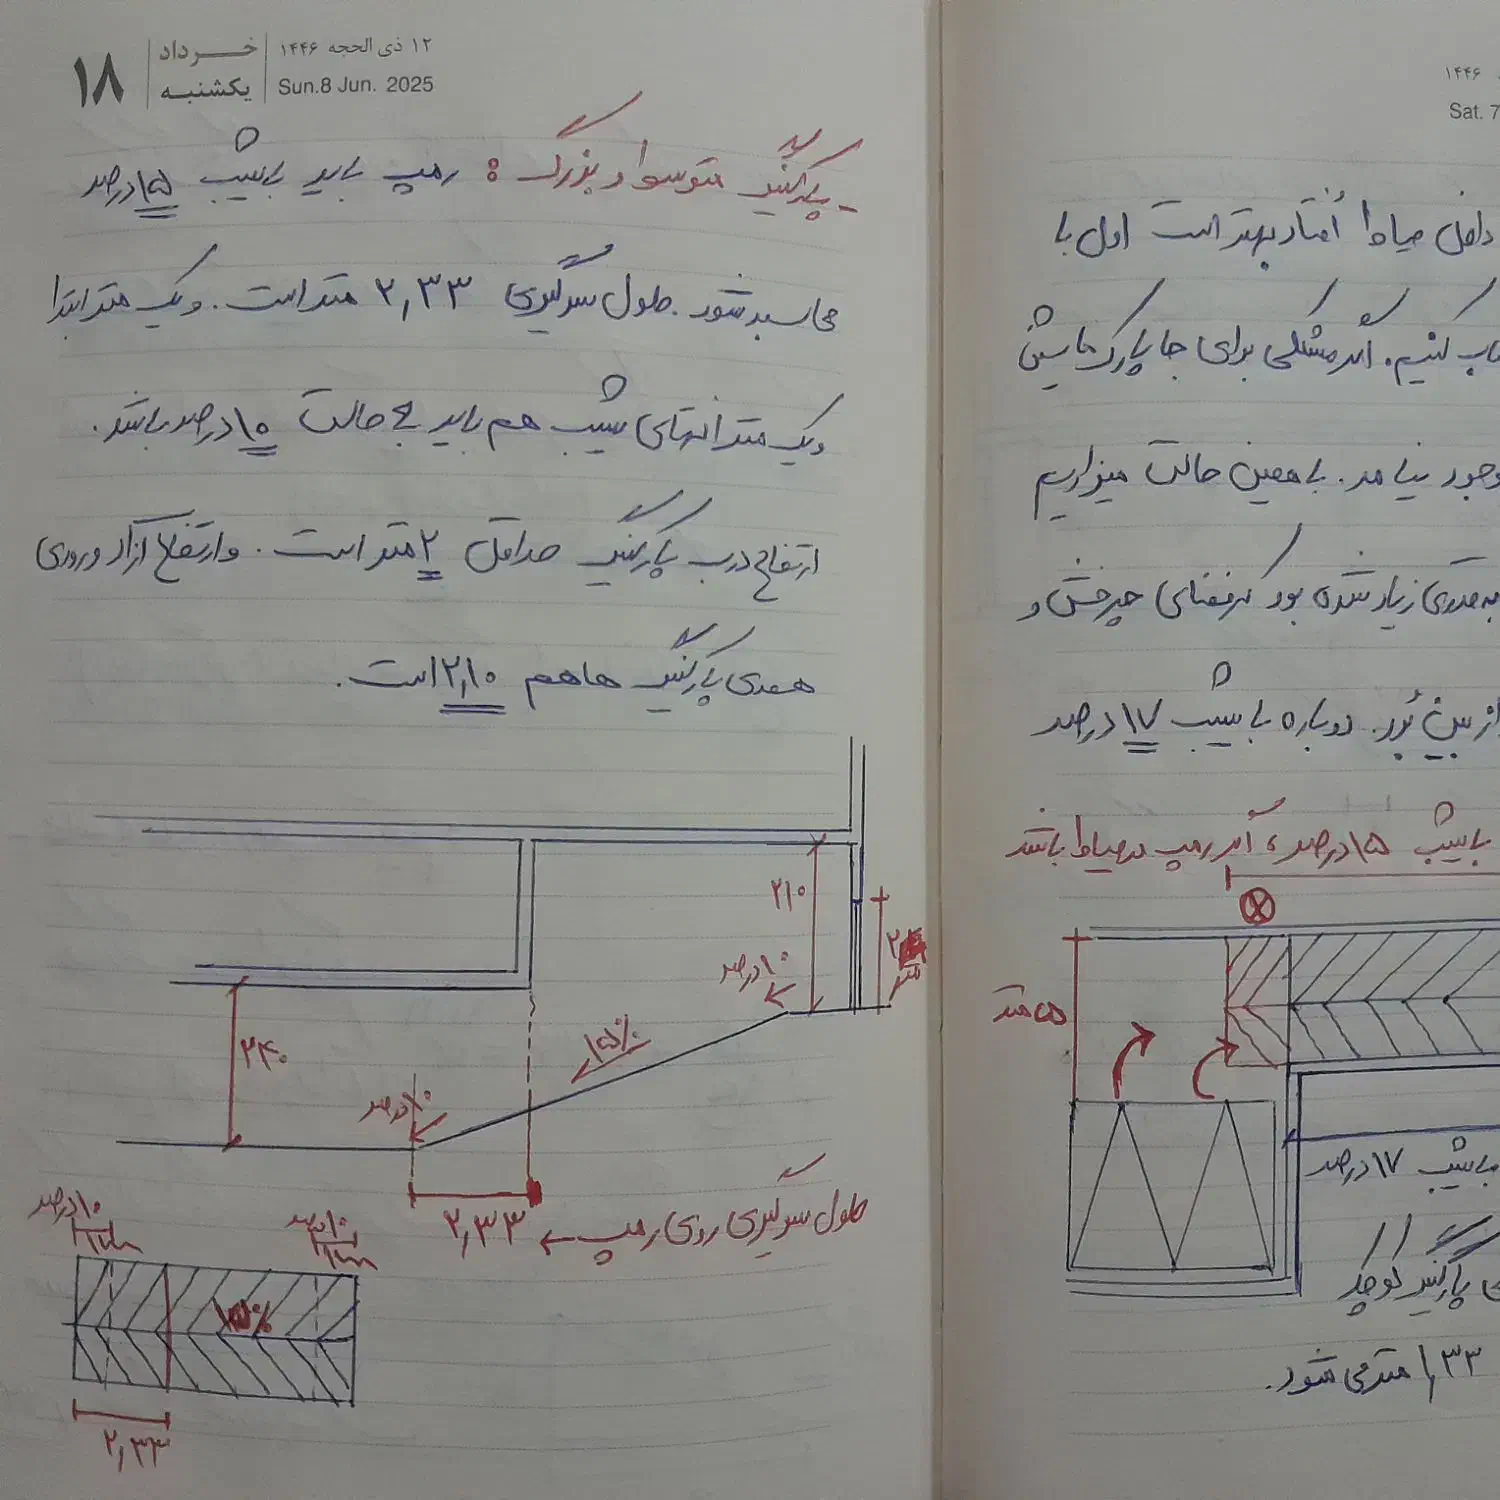 ۱۴۴۶
Sat. 7
داخل حیاط اُفتاد بهتر است اول با
کنیم. اگر مشکلی برای جا پارک ماشین
وجود نیامد. با همین حالت میزاریم
به قدری زیاد شده بود که فضای چرخش و
از بین بُرد. دوباره با شیب ۱۷ درصد
با شیب ۱۵ درصد، اگر رمپ در حیاط باشد
۵ متر
با شیب ۱۷ درصد
پارکینگ کوچک
۱,۳۳ متر می شود.
۱۸
خرداد
یکشنبه
۱۲ ذی الحجه ۱۴۴۶
Sun.8 Jun. 2025
- پارکینگ متوسط و بزرگ : رمپ باید با شیب ۱۵ درصد
محاسبه شود. طول سرگیری ۲,۳۳ متر است. و یک متر ابتدا
و یک متر انتهای شیب هم باید به حالت ۱۰ درصد باشد.
ارتفاع درب پارکینگ حداقل ۲ متر است. و ارتفاع آزاد ورودی
همه‌ی پارکینگ ها هم ۲,۱۰ است.
۲۱۰
۲
متر
۱۰ درصد
۱۵٪
۲۴۰
۱۰ درصد
۲,۳۳
طول سرگیری روی رمپ ←
۱۰ درصد
۱ متر
۱۰ درصد
۱ متر
۱۵٪
۲,۳۳